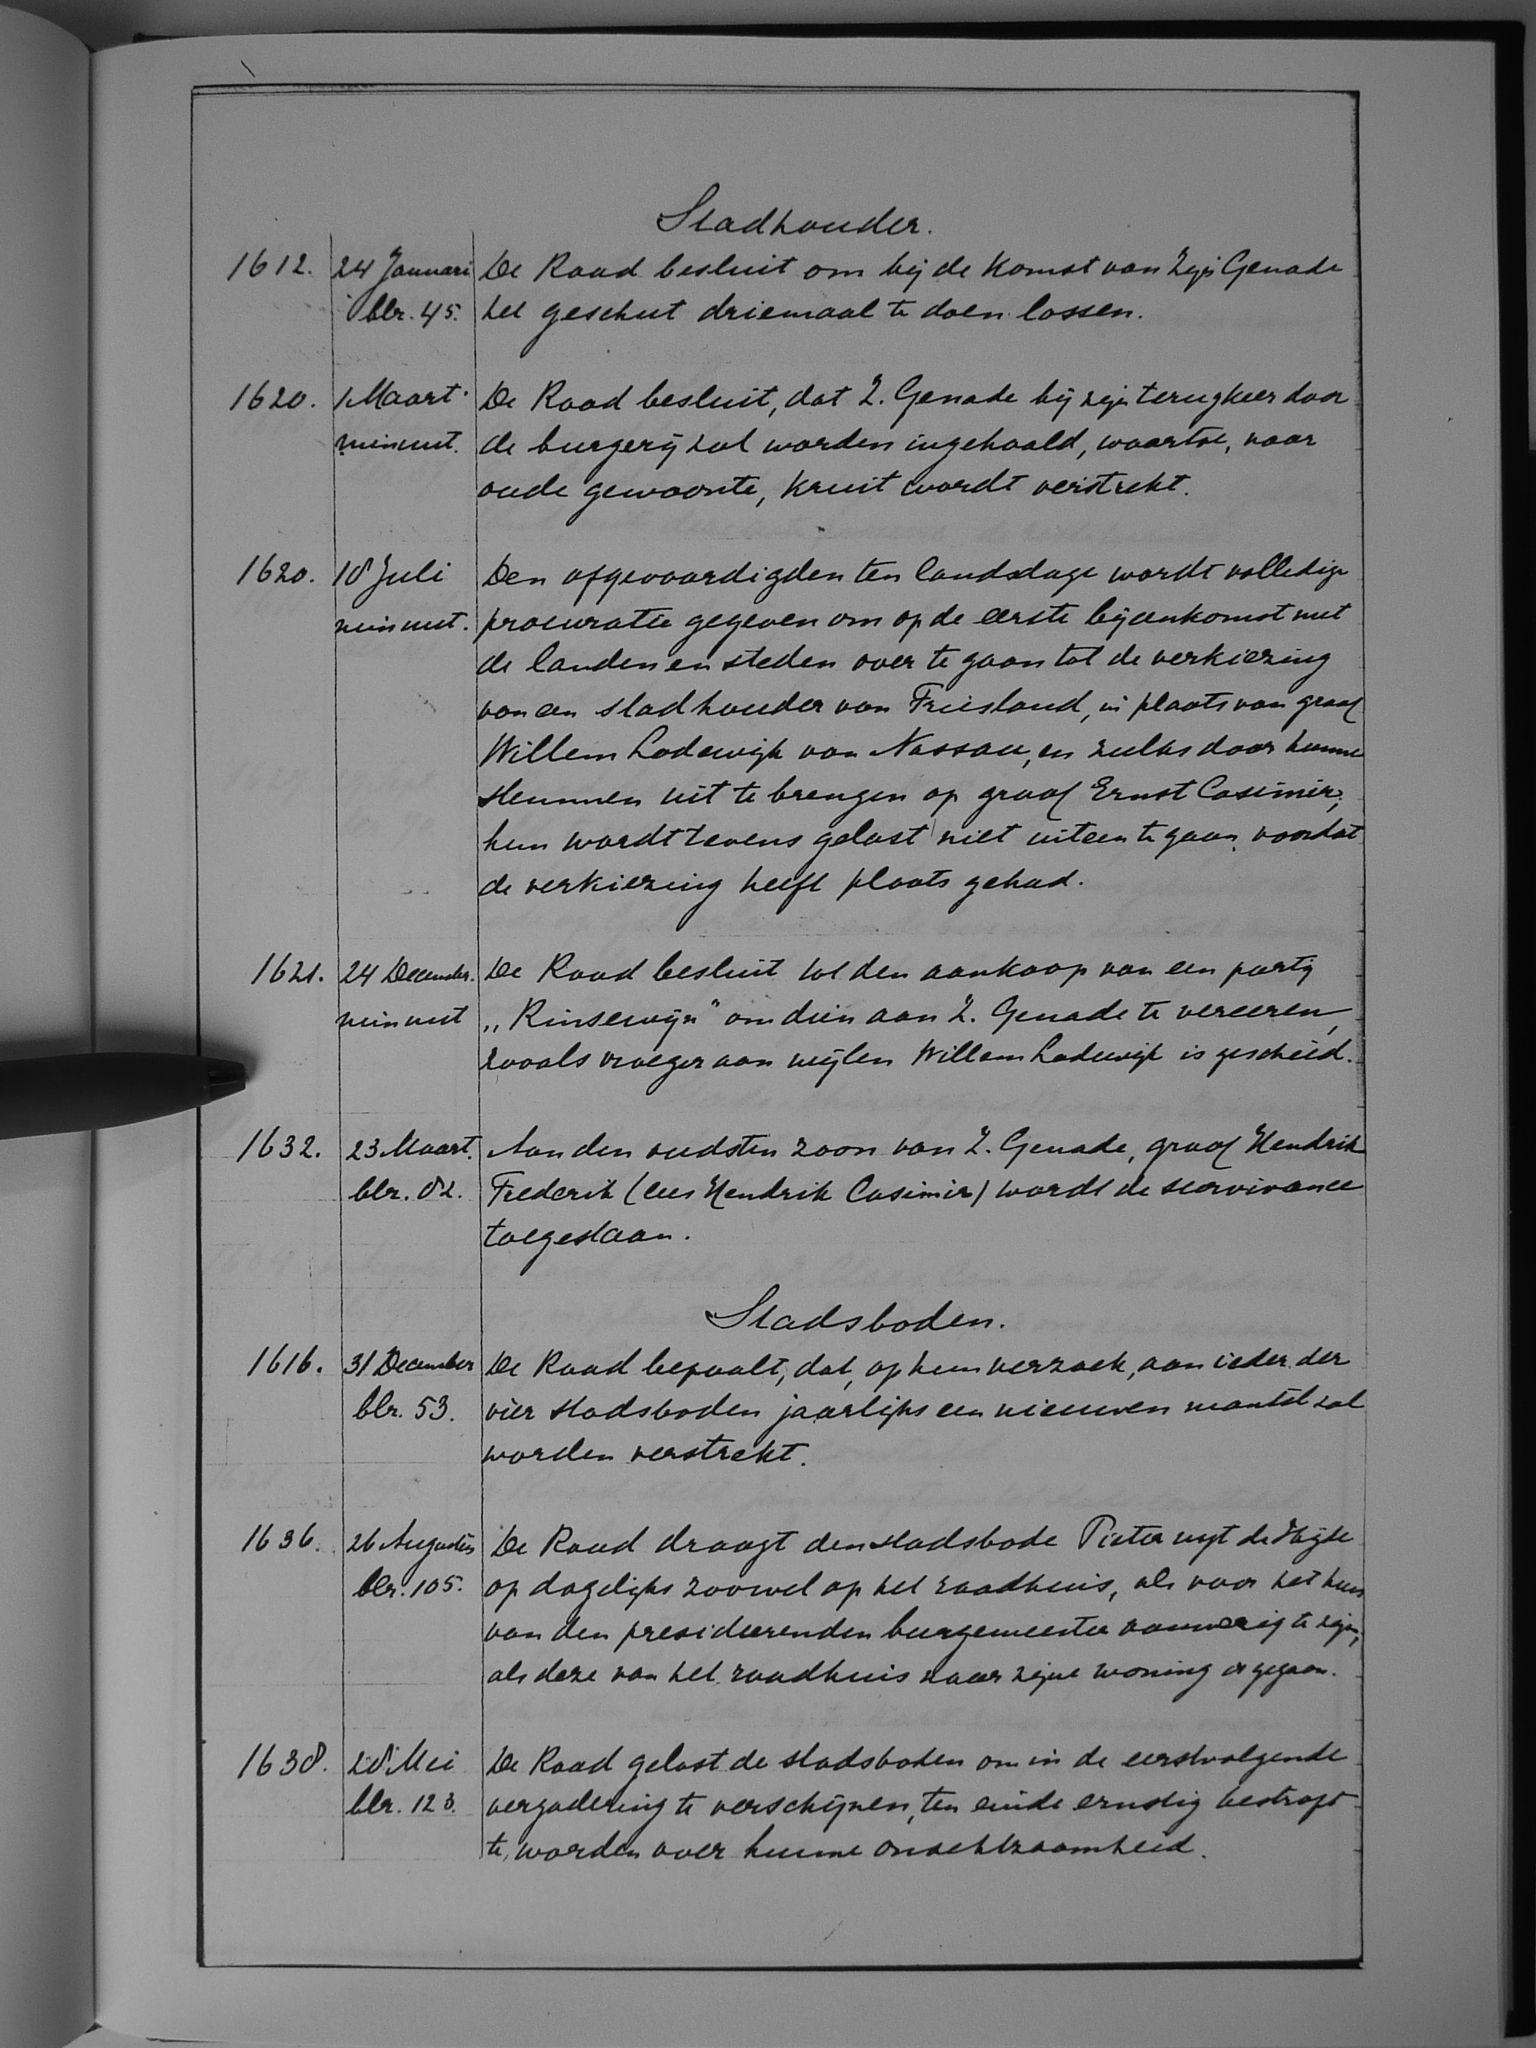 Stadhouder.
1612. 24 Januari De Raad besluit om bij de komst van Zijn Genade
blz. 45. het geschut driemaal te doen lossen.
1620. 1 Maart De Raad besluit, dat Z. Genade bij zijn terugkeer door
minuut. de burgerij zal worden ingehaald, waartoe, naar
oude gewoonte, kruit wordt verstrekt.
1620. 18 Juli Den afgevaardigden ten landsdage wordt volledige
minuut. procuratie gegeven om op de eerste bijeenkomst met
de landen en steden over te gaan tot de verkiezing
van een stadhouder van Friesland, in plaats van graaf
Willem Lodewijk van Nassau, en zulks door hunne
stemmen uit te brengen op graaf Ernst Casimir;
hun wordt tevens gelast niet uiteen te gaan, voordat
de verkiezing heeft plaats gehad.
1621. 24 December. De Raad besluit tot den aankoop van een partij
minuut „Rinsewijn" om dien aan Z. Genade te vereeren,
zooals vroeger aan wijlen Willem Lodewijk is geschied.
1632. 23 Maart. Aan den oudsten zoon van Z. Genade, graaf Hendrik
blz. 82. Frederik (lees Hendrik Casimir) wordt de survivance
toegestaan.
Stadsboden.
1616. 31 December De Raad bepaalt, dat, op hun verzoek, aan ieder der
blz. 53. vier stadsboden jaarlijks een nieuwen mantel zal
worden verstrekt.
1636. 26 Augustus De Raad draagt den stadsbode Pieter
blz. 105. op dagelijks zoowel op het raadhuis, als voor het huis
van den presideerenden burgemeester aanwezig te zijn,
als deze van het raadhuis naar zijne woning is gegaan.
1638. 28 Mei De Raad gelast de stadsboden om in de eerstvolgende
blz. 128. vergadering te verschijnen, ten einde ernstig bestraft
te worden over hunne onachtzaamheid.